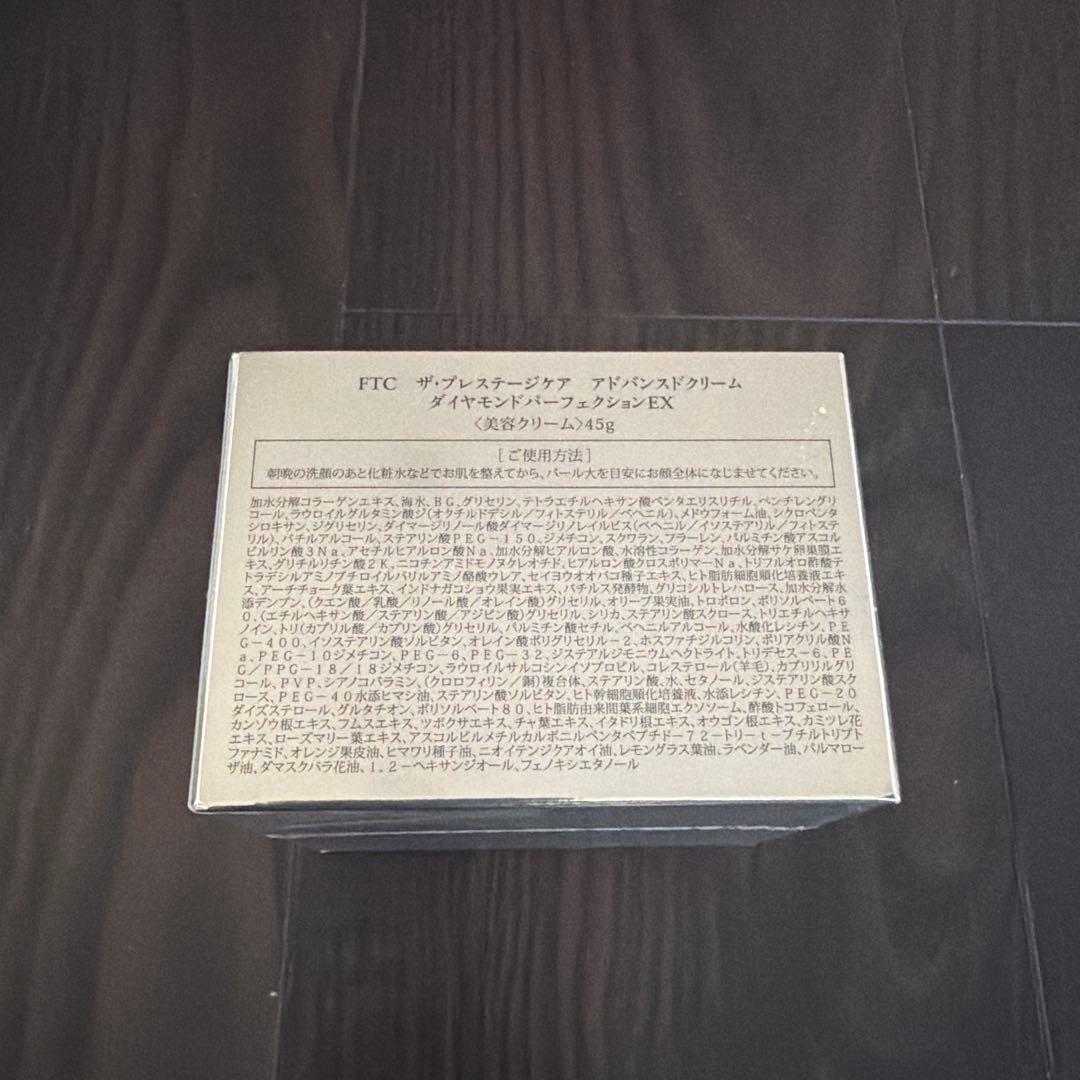 FTC ザ・プレステージケア アドバンスドクリーム
ダイヤモンドパーフェクションEX
〈美容クリーム〉45g
[ご使用方法]
朝晩の洗顔のあと化粧水などでお肌を整えてから、パール大を目安にお顔全体になじませてください。
加水分解コラーゲンエキス、海水、BG、グリセリン、テトラエチルヘキサン酸ペンタエリスリチル、ペンチレングリ
コール、ラウロイルグルタミン酸ジ(オクチルドデシル/フィトステリル/ベヘニル)、メドウフォーム油、シクロペンタ
シロキサン、ジグリセリン、ダイマージリノール酸ダイマージリノレイルビス(ベヘニル/イソステアリル/フィトステ
リル)、バチルアルコール、ステアリン酸PEG-150、ジメチコン、スクワラン、フラーレン、パルミチン酸アスコル
ビルリン酸3Na、アセチルヒアルロン酸Na、加水分解ヒアルロン酸、水溶性コラーゲン、加水分解サケ卵巣膜エ
キス、グリチルリチン酸2K、ニコチンアミドモノヌクレオチド、ヒアルロン酸クロスポリマーNa、トリフルオロ酢酸テ
トラデシルアミノブチロイルバリルアミノ酪酸ウレア、セイヨウオオバコ種子エキス、ヒト脂肪細胞順化培養液エキ
ス、アーチチョーク葉エキス、インドナガコショウ果実エキス、バチルス発酵物、グリコシルトレハロース、加水分解水
添デンプン、(クエン酸/乳酸/リノール酸/オレイン酸)グリセリル、オリーブ果実油、トロポロン、ポリソルベート6
0、(エチルヘキサン酸/ステアリン酸/アジピン酸)グリセリル、シリカ、ステアリン酸スクロース、トリエチルヘキサ
ノイン、トリ(カプリル酸/カプリン酸)グリセリル、パルミチン酸セチル、ベヘニルアルコール、水酸化レシチン、PE
G-400、イソステアリン酸ソルビタン、オレイン酸ポリグリセリル-2、ホスファチジルコリン、ポリアクリル酸N
a、PEG-10ジメチコン、PEG-6、PEG-32、ジステアルジモニウムヘクトライト、トリデセス-6、PE
G/PPG-18/18ジメチコン、ラウロイルサルコシンイソプロピル、コレステロール(羊毛)、カプリリルグリ
コール、PVP、シアノコバラミン、(クロロフィリン/銅)複合体、ステアリン酸、水、セタノール、ジステアリン酸スク
ロース、PEG-40水添ヒマシ油、ステアリン酸ソルビタン、ヒト幹細胞順化培養液、水添レシチン、PEG-20
ダイズステロール、グルタチオン、ポリソルベート80、ヒト脂肪由来間葉系細胞エクソソーム、酢酸トコフェロール、
カンゾウ根エキス、フムスエキス、ツボクサエキス、チャ葉エキス、イタドリ根エキス、オウゴン根エキス、カミツレ花
エキス、ローズマリー葉エキス、アスコルビルメチルカルボニルペンタペプチド-72-トリ-t-ブチルトリプト
ファナミド、オレンジ果皮油、ヒマワリ種子油、ニオイテンジクアオイ油、レモングラス葉油、ラベンダー油、パルマロー
ザ油、ダマスクバラ花油、1,2-ヘキサンジオール、フェノキシエタノール